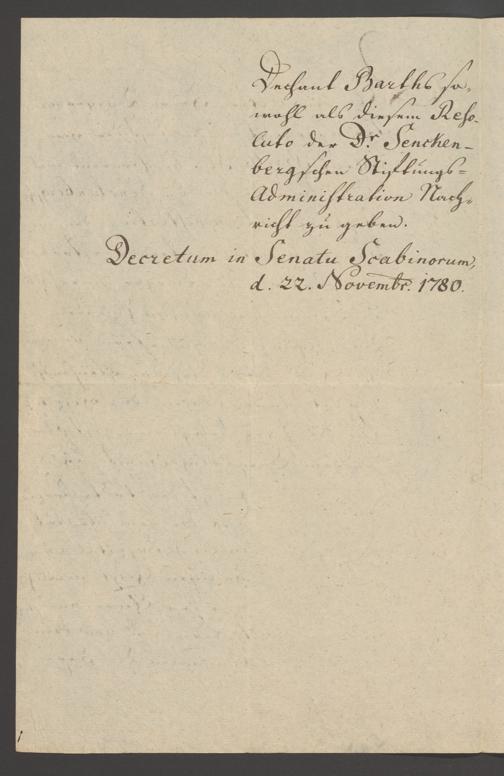 Dechant Barths so-
wohl als diesem Reso-
luto der Dr. Sencken-
bergschen Stiftungs-
Administration Nach-
richt zu geben.
Decretum in Senatu Scabinorum,
d. 22. Novembr. 1780.